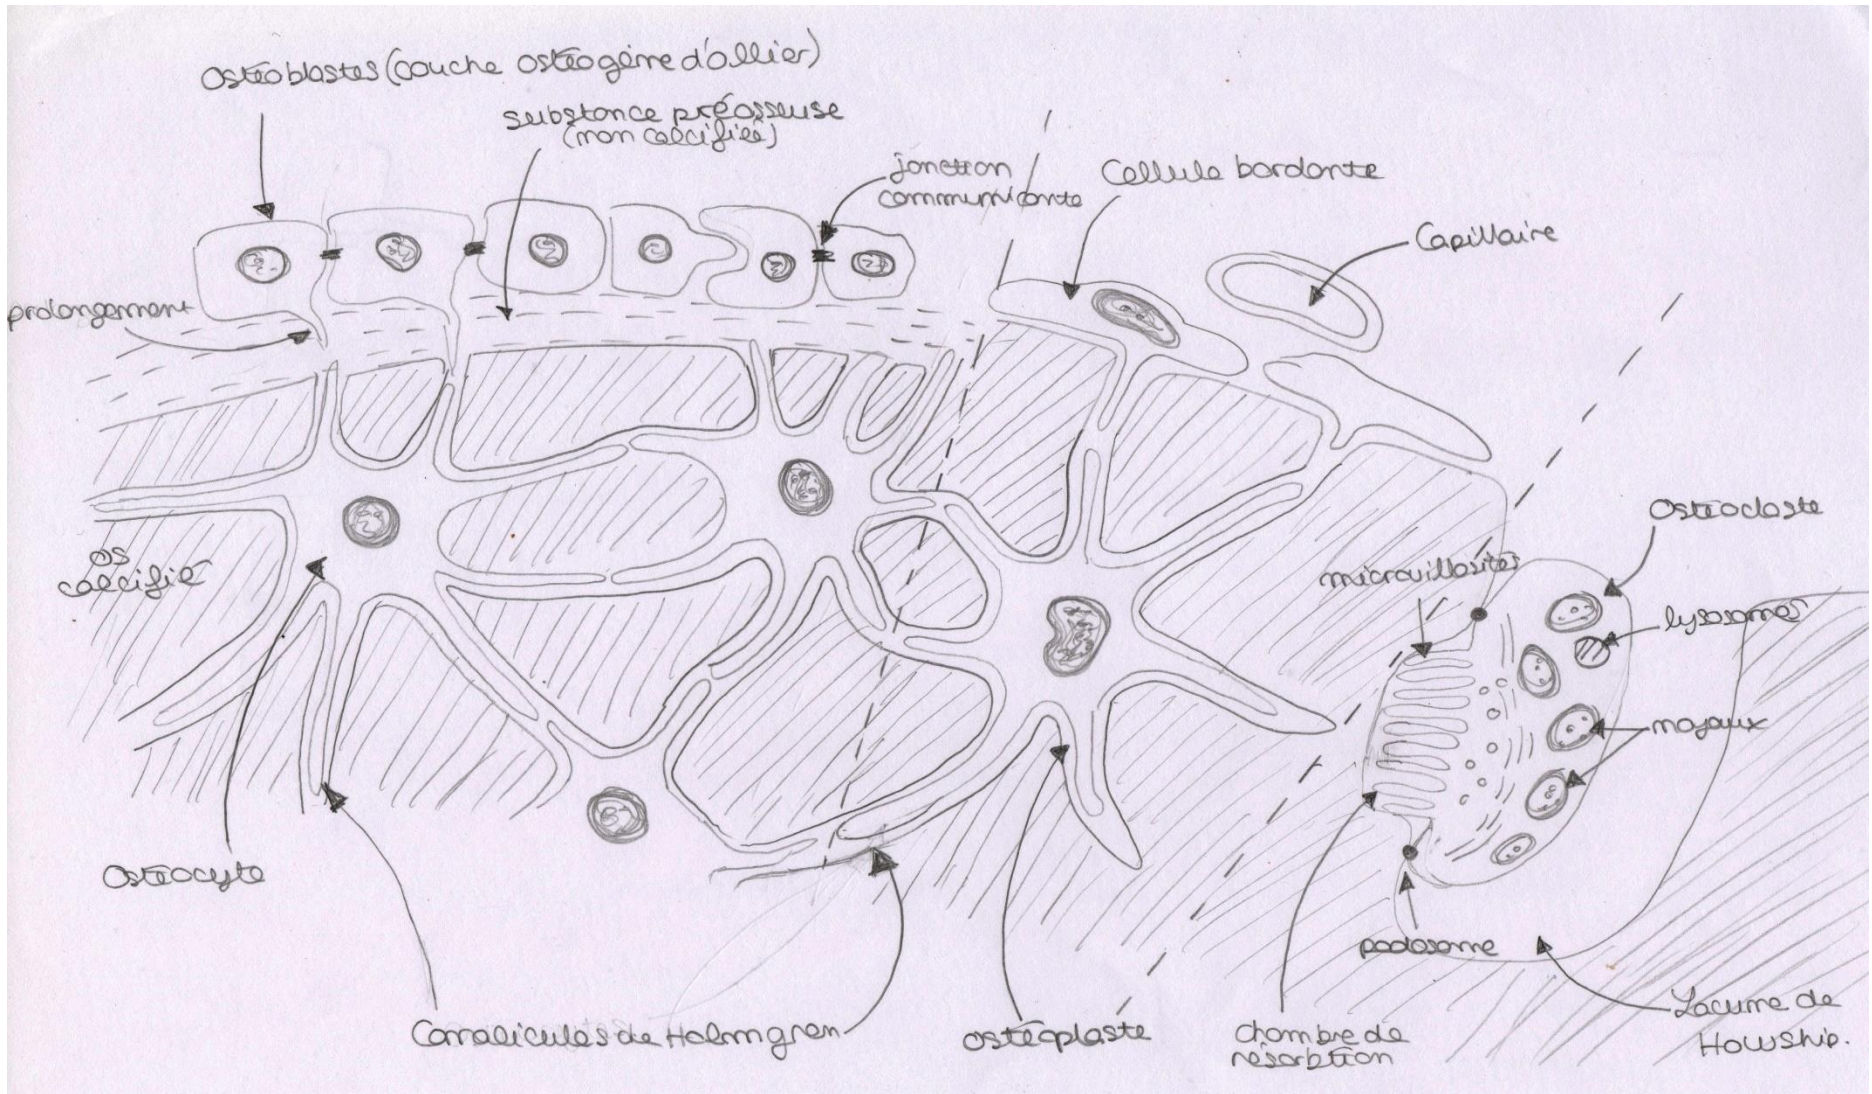 Ostéoblastes (couche ostéogène d'ollier)
substance préosseuse
(non calcifiée)
jonction
communicante
Cellule bordante
Capillaire
prolongement
Ostéoclaste
microvillosités
os
calcifié
lysosomes
noyaux
Ostéocyte
podosome
Canalicules de Holmgren
ostéoplaste
chambre de
résorbtion
Lacune de
Howship.